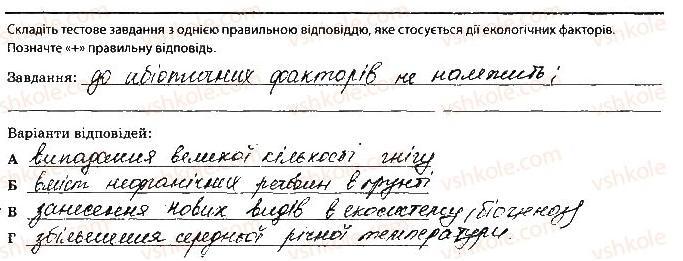 Складіть тестове завдання з однією правильною відповіддю, яке стосується дії екологічних факторів.
Позначте «+» правильну відповідь.
Завдання: до абіотичних факторів не належить:
Варіанти відповідей:
А випадання великої кількості снігу
Б вміст неорганічних речовин в ґрунті
В занесення нових видів в екосистему (біоценоз)
Г збільшення середньої річної температури.